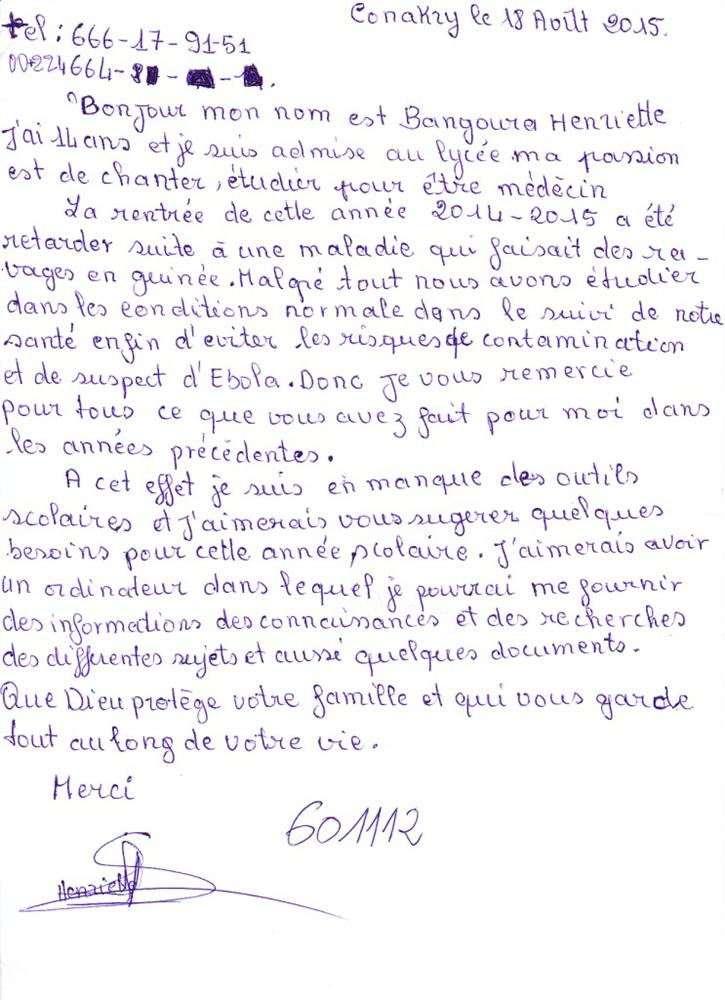 Conakry le 18 Août 2015.
tel : 666-17-91-51
00224664-
"Bonjour mon nom est Bangoura Henriette
J'ai 14 ans et je suis admise au lycée ma passion
est de chanter, étudier pour être médècin
La rentrée de cette année 2014-2015 a été
retarder suite à une maladie qui faisait des ra-
vages en guinée. Malgré tout nous avons étudier
dans les conditions normale dans le suivi de notre
santé enfin d'eviter les risques de contamination
et de suspect d'Ebola. Donc je vous remercie
pour tous ce que vous avez fait pour moi dans
les années précédentes.
A cet effet je suis en manque des outils
scolaires et j'aimerais vous sugerer quelques
besoins pour cette année scolaire. J'aimerais avoir
un ordinateur dans lequel je pourrai me fournir
des informations des connaissances et des recherches
des differentes sujets et aussé quelques documents.
Que Dieu protège votre famille et qui vous garde
tout au long de votre vie.
Merci
601112
Henriette